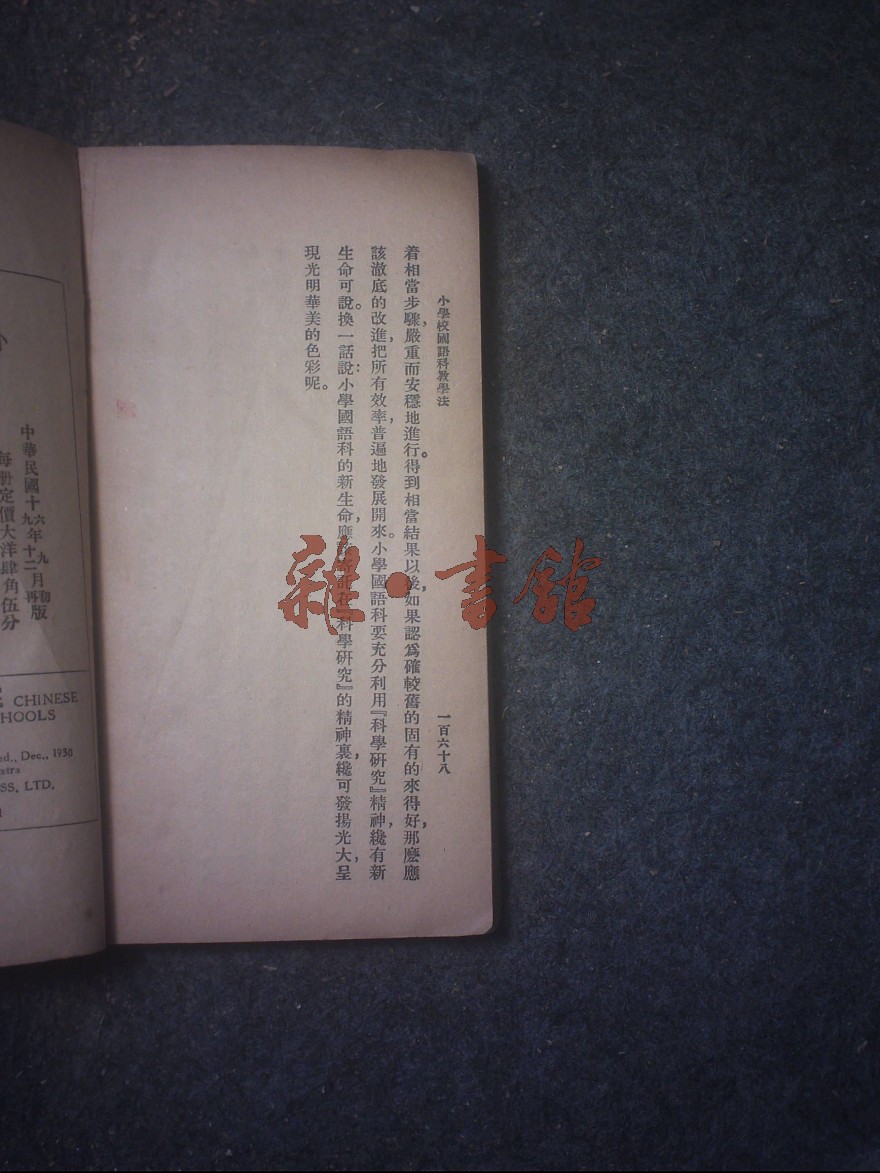 小學校國語科教學法
一百六十八
着相當步驟，嚴重而安穩地進行。得到相當結果以後，如果認爲確較舊的固有的來得好，那麼應
該澈底的改進，把所有效率，普遍地發展開來。小學國語科要充分利用『科學研究』精神，纔有新
生命可說。換一話說：小學國語科的新生命，應該寄託在『科學研究』的精神裏，纔可發揚光大，呈
現光明華美的色彩呢。
雜·書館
中華民國十六年九月初版
九年十二月再版
每册定價大洋肆角伍分
CHINESE
Dec., 1930
LTD.